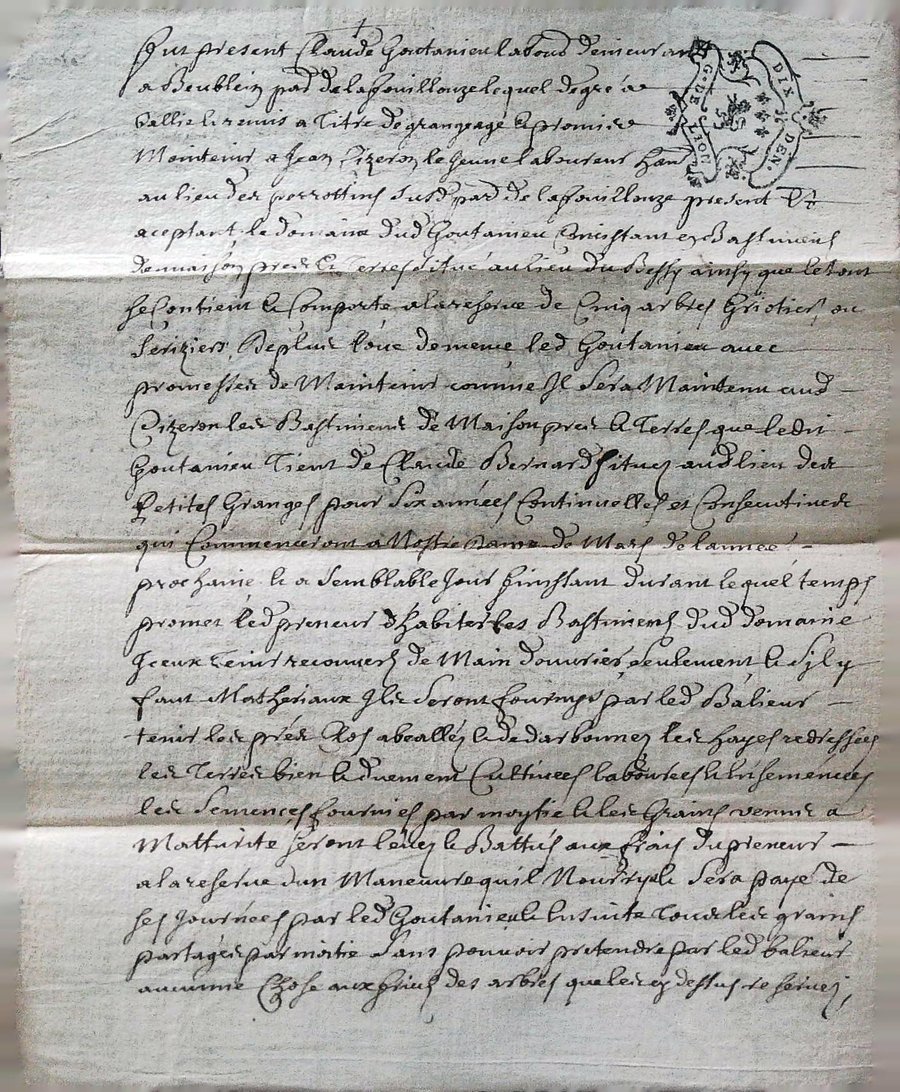 Fut present Claude Goutanieu labour demeurant
a Beublein par de lafouillouze lequel de gre a
Baillé & remis a Titre de grangeage & promis
Maintenir a Jean Cizeron le Jeune laboureur hant
au lieu des perrottins susd par de lafouillouze present Et
aceptant le domaine dud Goutanieu Consistant en Bastiments
de maison pres & Terres situé au lieu du Bessy ainsy que le tout
se Contient & Comporte a la reserve de Cinq arbres Griotiers ou
Seriziers, De plus loue de meme led Goutanieu avec
promesses de Maintenir comme Il Sera Maintenu aud
Cizeron les Bastiments de Maison pres & Terres que ledit
Goutanieu Tient de Claude Bernard situez aud lieu des
Petites Granges pour Six années Continuelles et Consecutives
qui Commenceront a Nostre dame de Mars de lannee
prochaine & a Semblable Jour finissant durant lequel temps
promet led preneur d'habiter les Bastiments dud domaine
Iceux Tenir recouverts de Main douvrier seulement & Sil y
faut Matheriaux Ils Seront fournys par led Balieur
tenir les prés Clos abeallés & dedarbonnez les hayes redressées
les Terres bien & duement Cultivees labourées & Ensemencées
les Semences fournies par moytie & les Grains venus a
Matturite seront levez & Battus aux frais du preneur
a la reserve dun Maneuvre quil Nourryra & Sera payé de
ses Journées par led Goutanieu & Ensuite Tous les grains
partagés par moitie Sans pouvoir pretendre par led balieur
aucunne Chose aux fruits des arbres que les cy dessus reservez,
G. DE LION
DIX DEN.